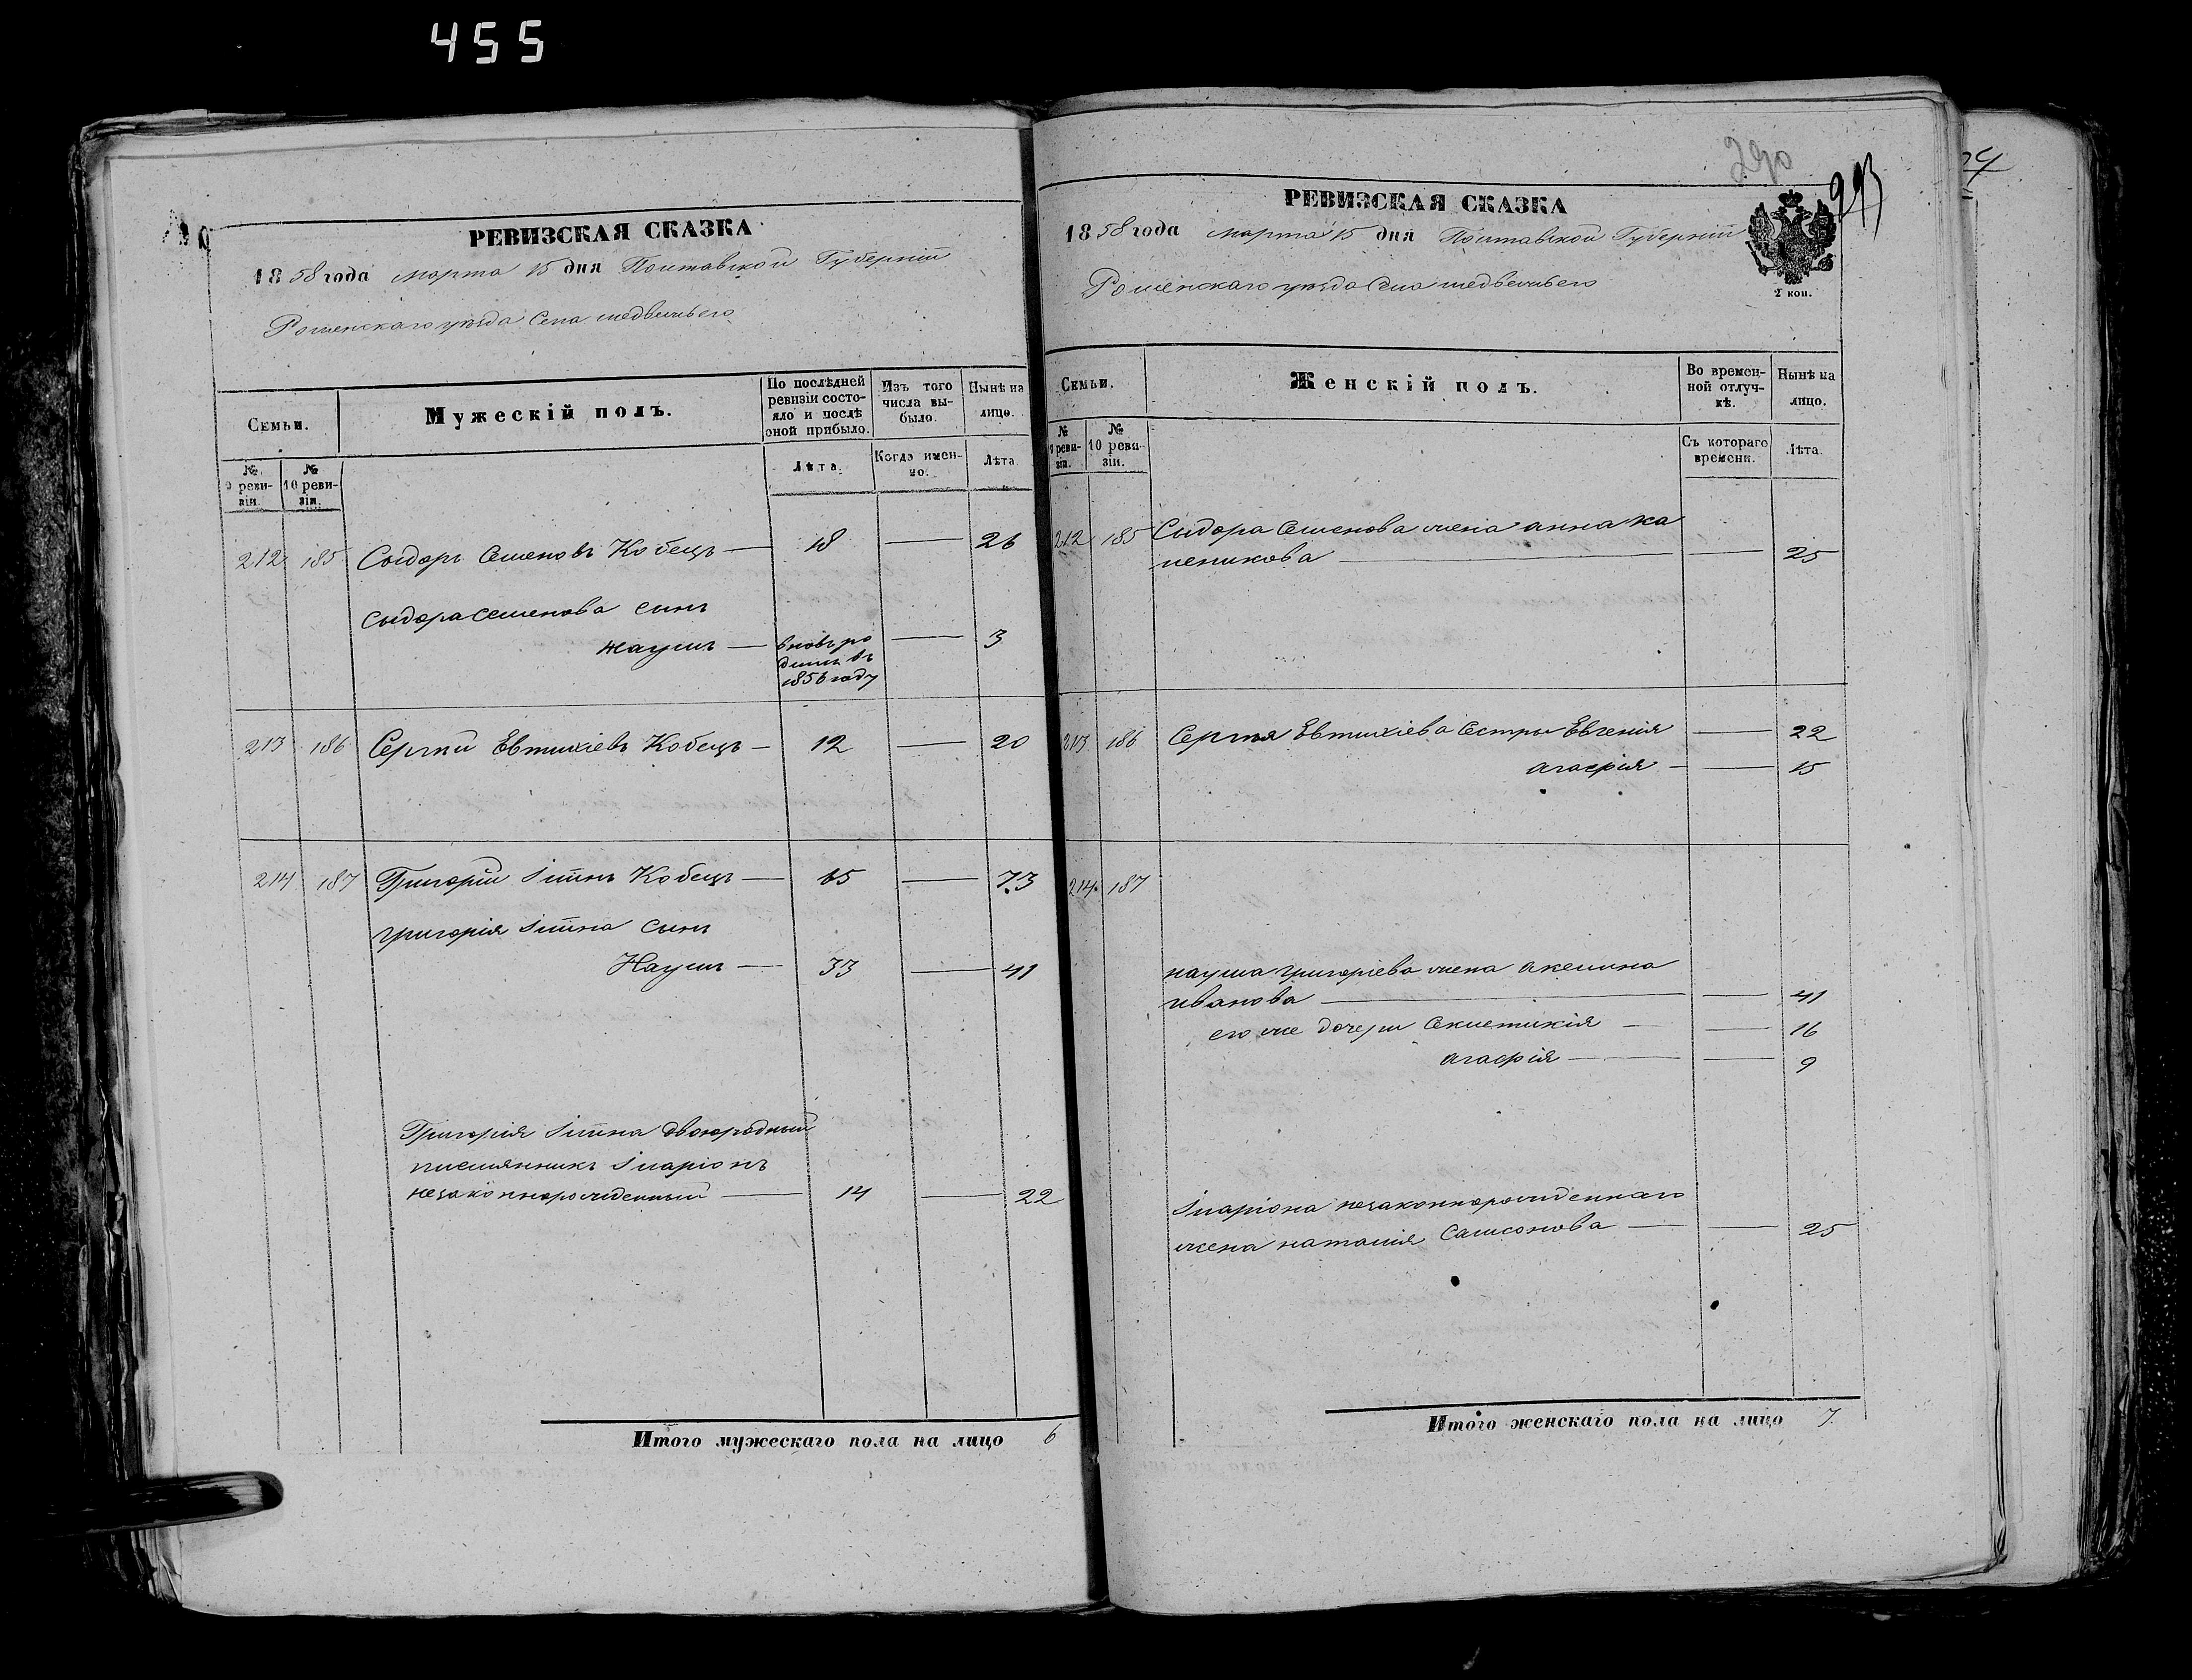 455
РЕВИЗСКАЯ СКАЗКА
1858 года марта 15 дня Полтавской Губерніи
Роменскаго уезда Села медвежьего
Семьи.
Мужескій полъ.
По послѣдней ревизіи состояло и послѣ оной прибыло.
Изъ того числа выбыло.
Нынѣ на лицо.
№ 9 ревизіи.
№ 10 ревизіи.
Лѣта.
Когда именно.
Лѣта
212 185 Сыдоръ Семеновъ Кобецъ — 18 — 26
Сыдора Семенова сынъ
Наумъ — вновь ро — 3
дился въ
1856 году
213 186 Сергій Евтихіевъ Кобецъ — 12 — 20
214 187 Григорій Кобецъ — 65 — 73
григорія сынъ
Наумъ — 33 — 41
Григорія двоюродный
племянникъ Іларіонъ
незаконнорожденный — 14 — 22
Итого мужескаго пола на лицо 6
290
293
РЕВИЗСКАЯ СКАЗКА
1858 года марта 15 дня Полтавской Губерніи
Роменскаго уезда Села медвежьего
2 коп.
Семьи.
Женскій полъ.
Во временной отлучкѣ.
Нынѣ на лицо.
№ 9 ревизіи.
№ 10 ревизіи.
Съ котораго времени.
Лѣта.
212 185 Сыдора Семенова жена анна ка
леникова — — 25
213 186 Сергія Евтихіева Сестры Евгенія — — 22
агафія — — 15
214 187
наума григоріева жена акелина
иванова — — 41
его же дочери Секлетикія — — 16
агафія — — 9
Іларіона незаконнорожденнаго
жена наталія Самсонова — — 25
Итого женскаго пола на лицо 7